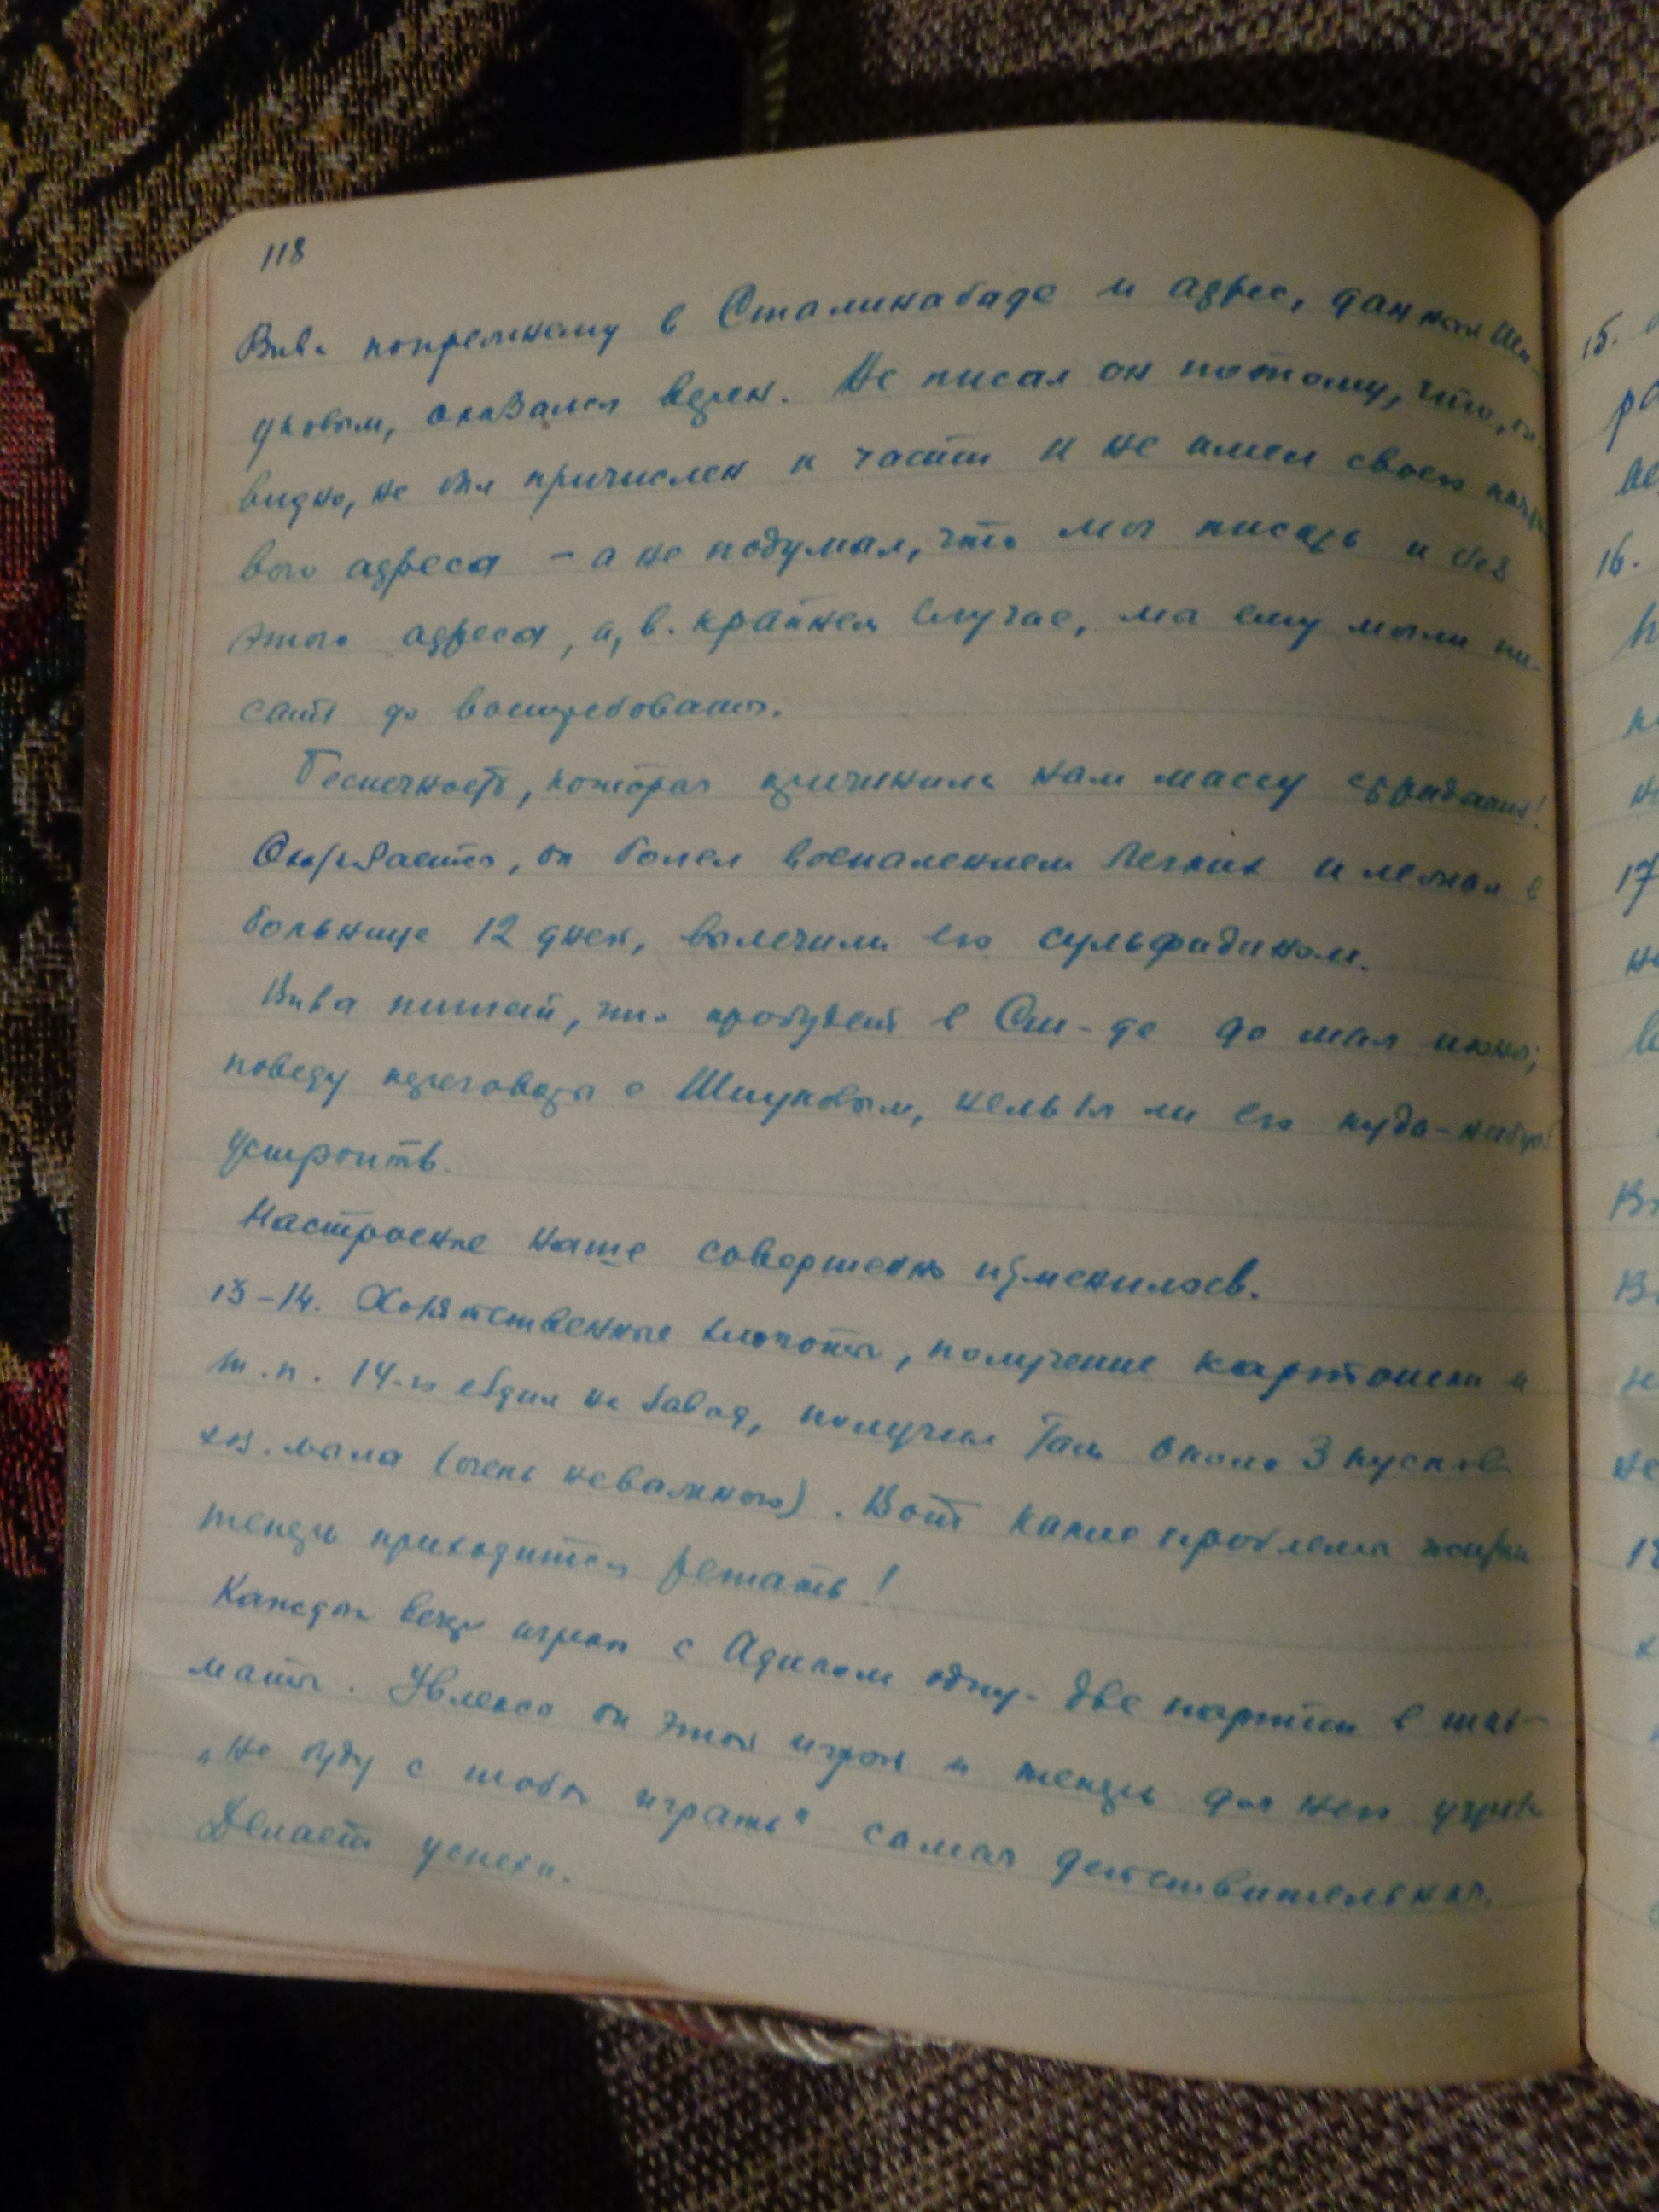 118
Вива попрежнему в Сталинабаде и адрес, данный Ши-
уковым, оказался верен. Не писал он потому, что, оче-
видно, не был причислен к части и не имел своего почто-
вого адреса – а не подумал, что мы писать и без
этого адреса, и, в крайнем случае, мы ему могли пи-
сать до востребования.
Беспечность, которая причинила нам массу страданий!
Оказывается, он болел воспалением легких и лежал в
больнице 12 дней, вылечили его сульфидином.
Вива пишет, что пробудет в Ст-де до мая июня;
поведу переговоры с Шиуковым, нельзя ли его куда-нибудь
устроить.
Настроение наше совершенно изменилось.
13-14. Хозяйственные хлопоты, получение картошки и
т.п. 14-го ездил на завод, получил там около 3 кусков
хоз. мыла (очень неважного). Вот какие проблемы жизни
теперь приходится решать!
Каждый вечер играю с Адиком одну-две партии в шах-
маты. Увлекся он этой игрой и теперь для него угроза
„Не буду с тобой играть" самая действительная.
Делает успехи.
15.
16.
17